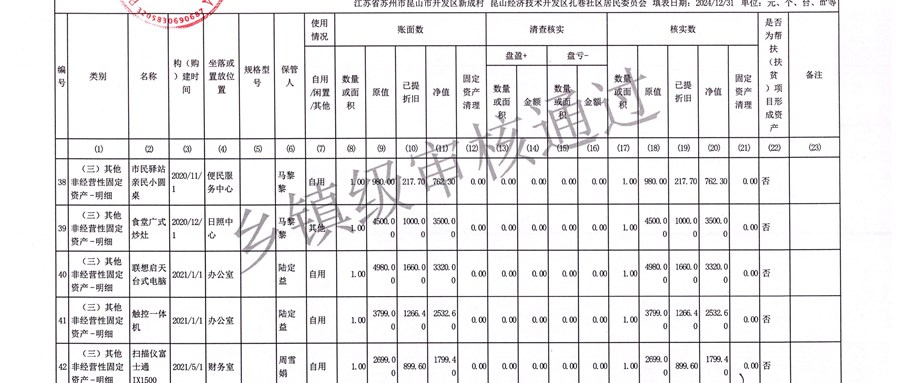 江苏省苏州市昆山市开发区新成村 昆山经济技术开发区孔巷社区居民委员会 填表日期：2024/12/31 单位：元、个、台、㎡等
3205830690687
编号 类别 名称 构（购）建时间 坐落或置放位置 规格型号 保管人 使用情况 账面数 清查核实 核实数 是否为帮扶（扶贫）项目形成资产 备注
自用/闲置/其他 数量或面积 原值 已提折旧 净值 固定资产清理 盘盈+ 盘亏- 数量或面积 原值 已提折旧 净值 固定资产清理
数量或面积 金额 数量或面积 金额
(1) (2) (3) (4) (5) (6) (7) (8) (9) (10) (11) (12) (13) (14) (15) (16) (17) (18) (19) (20) (21) (22) (23)
38 （三）其他非经营性固定资产-明细 市民驿站亲民小圆桌 2020/11/1 便民服务中心 马黎黎 自用 1.00 980.00 217.70 762.30 0.00 0.00 0.00 0.00 0.00 1.00 980.00 217.70 762.30 0.00 否
39 （三）其他非经营性固定资产-明细 食堂广式炒灶 2020/12/1 日照中心 马黎黎 其他 1.00 4500.00 1000.00 3500.00 0.00 0.00 0.00 0.00 0.00 1.00 4500.00 1000.00 3500.00 0.00 否
40 （三）其他非经营性固定资产-明细 联想启天台式电脑 2021/1/1 办公室 陆定益 自用 1.00 4980.00 1660.00 3320.00 0.00 0.00 0.00 0.00 0.00 1.00 4980.00 1660.00 3320.00 0.00 否
41 （三）其他非经营性固定资产-明细 触控一体机 2021/1/1 办公室 陆定益 自用 1.00 3799.00 1266.40 2532.60 0.00 0.00 0.00 0.00 0.00 1.00 3799.00 1266.40 2532.60 0.00 否
42 （三）其他非经营性固定资产-明细 扫描仪富士通IX1500 2021/5/1 财务室 周雪娟 自用 1.00 2699.00 899.60 1799.40 0.00 0.00 0.00 0.00 0.00 1.00 2699.00 899.60 1799.40 0.00 否
乡镇级审核通过